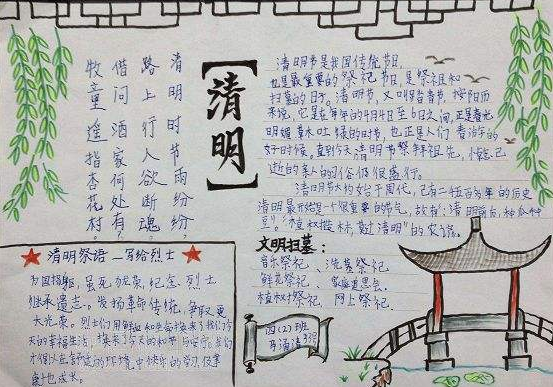 清明时节雨纷纷,
路上行人欲断魂。
借问酒家何处有?
牧童遥指杏花村。
【清明】
清明节是我国传统节日,
也是最重要的祭祀节日,是祭祖和
扫墓的日子。清明节,又叫踏青节,按阳历
来说,它是在每年的4月4日至6日之间,正是春光
明媚草木吐绿的时节,也正是人们春游的
好时候,直到今天清明节祭拜祖先,悼念已
逝的亲人的习俗仍很盛行。
清明节大约始于周代,已有二千五百多年的历史
清明最开始是一个很重要的节气,故有:清明前后,种瓜种
豆。"植树造林,莫过清明"的农谚。
文明扫墓:
音乐祭祀、洗墓祭祀
鲜花祭祀、家庭追思会
植树祭祀、网上祭祀.
★清明祭语—写给烈士★
为国捐躯,虽死犹荣,纪念烈士
继承遗志。发扬革命传统,争取更
大光荣。烈士们用鲜血和生命换来了我们今
天的幸福生活,换来了今天的和平与安宁。我们
才得以在舒适的环境中快乐的学习,健康
成长。
四(2)班